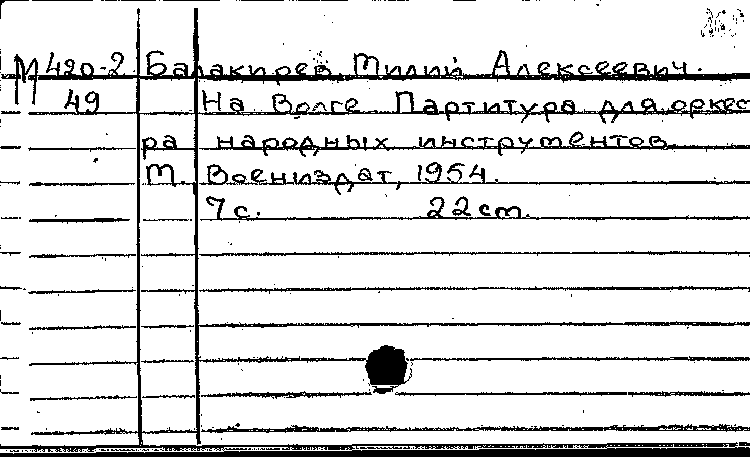 М 420-2 Балакирев, Милий Алексеевич.
49 На Волге. Партитура для оркест
ра народных инструментов.
М. Воениздат, 1954.
7 с. 22 см.